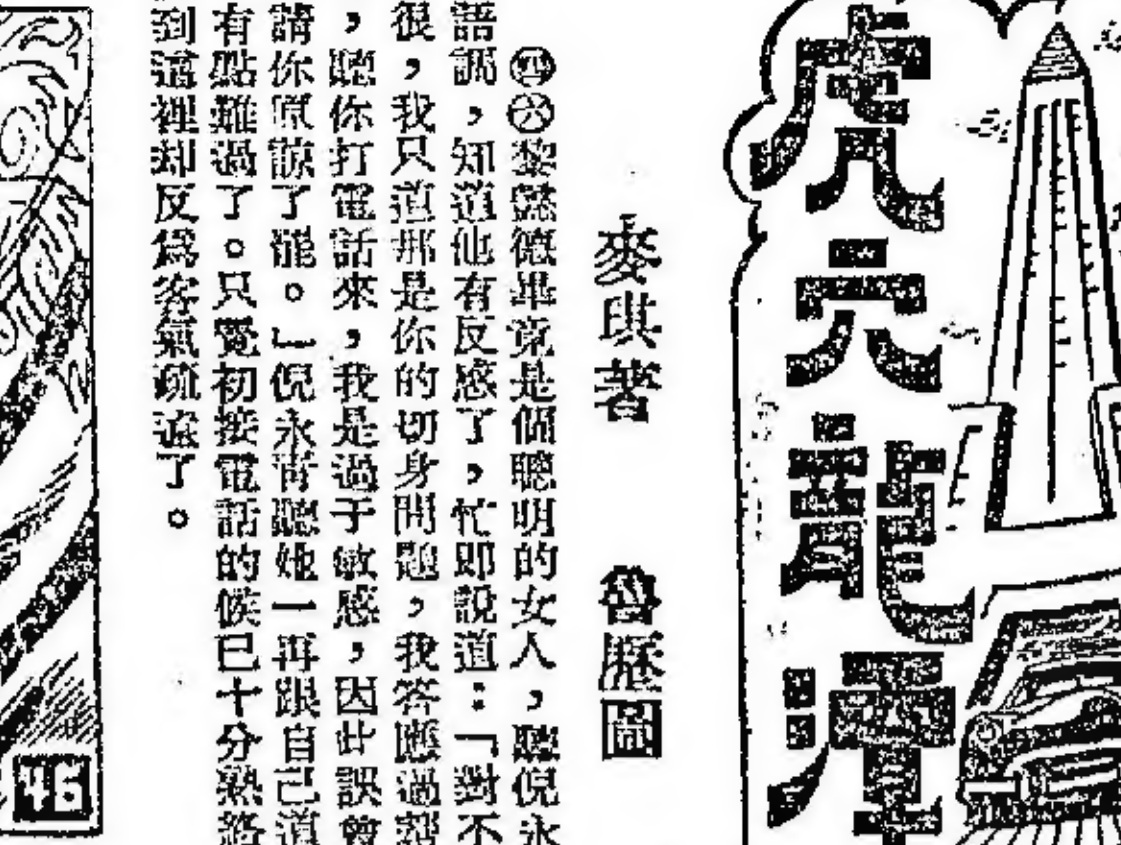 虎穴龍津
麥琪著　魯歷圖
㊃㊅黎懿德畢竟是個聰明的女人，聽倪永
語調，知道他有反感了，忙即說道：「對不
很，我只道那是你的切身問題，我答應過
，聽你打電話來，我是過于敏感，因此誤會
請你原諒了罷。」倪永青聽她一再跟自己道
有點難過了。只覺初接電話的候已十分熟絡
到這裡却反爲客氣疏遠了。
46